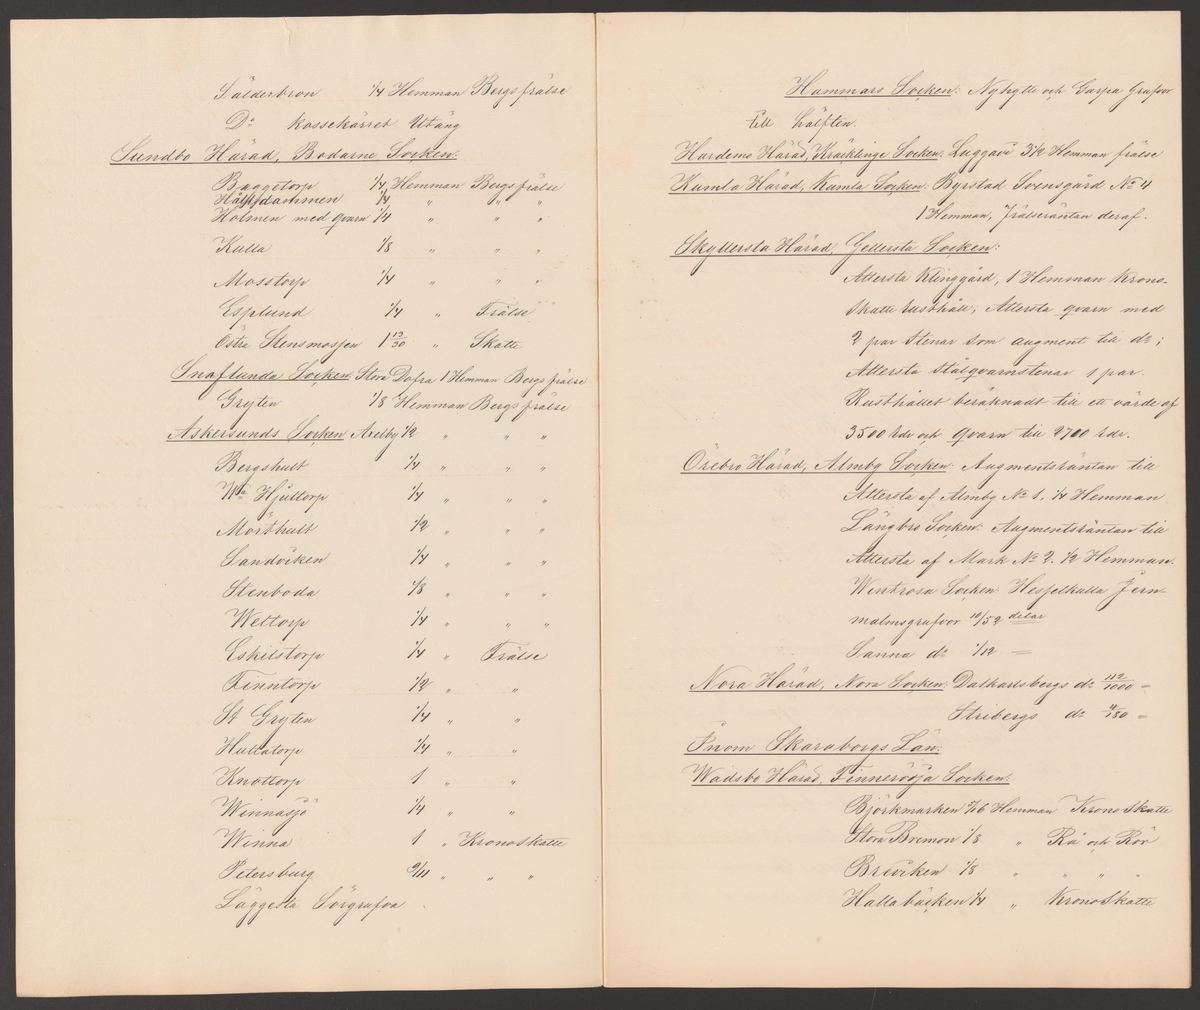 Sälderbron 1/4 Hemman Bergsfrälse
Do kossekärret Utäng
Sundbo Härad, Bodarne Socken.
Baggetorp 1/4 Hemman Bergsfrälse
dammen 1/4 " " "
Holmen med qvarn 1/4 " " "
Kulla 1/8 " " "
Mosstorp 1/4 " " "
Esplund 1/4 " Frälse
Östra Stensmosjen 1 13/30 " Skatte
Snaflunda Socken Stora Dofra 1 Hemman Bergsfrälse
Gryten 1/8 Hemman Bergsfrälse
Askersunds Socken Axelby 1/2 " " "
Bergshult 1/4 " " "
Hjultorp 1/4 " " "
Mörthult 1/2 " " "
Sandviken 1/4 " " "
Stenboda 1/8 " " "
Wettorp 1/4 " " "
Eskilstorp 1/4 " Frälse
Finntorp 1/2 " "
St Gryten 1/4 " "
Hultatorp 1/4 " "
Knottorp 1 " "
Winnasjö 1/4 " "
Winna 1 " Kronoskatte
Petersburg 9/11 " " "
Läggesta Sörgrufva
Hammars Socken: Nyhytte och Garpa Grufvor
till hälften.
Hardemo Härad, Kräcklinge Socken. Luggavi 3 1/2 Hemman frälse
Kumla Härad, Kumla Socken: Byrstad Svensgård No 4
1 Hemman, Frälseräntan deraf.
Skyllersta Härad, Gellersta Socken:
Attersta Klinggård, 1 Hemman Krono-
skatte rusthåll; Attersta qvarn med
2 par Stenar som augment till do;
Attersta Stålqvarnstenar 1 par.
Rusthållet beräknadt till ett värde af
3500 rdr och qvarn till 2700 rdr.
Örebro Härad, Almby Socken: Augmentsräntan till
Attersta af Almby No 1. 1/4 Hemman
Längbro Socken: Augmentsräntan till
Attersta af Mark No 2. 1/2 Hemman.
Wintrosa Socken: Hesselkulla Jern-
malmsgrufvor 10/52 delar
Sanna do 1/12 =
Nora Härad, Nora Socken: Dalkarlsbergs do 112/1000 =
Stribergs do 4/180 =
Inom Skaraborgs Län.
Wadsbo Härad, Finnerödja Socken:
Björkmarken 1/16 Hemman KronoSkatte
Stora Bremon 1/8 " Rå och Rör
Breviken 1/8 " " " "
Hallabäcken 1/4 " KronoSkatte